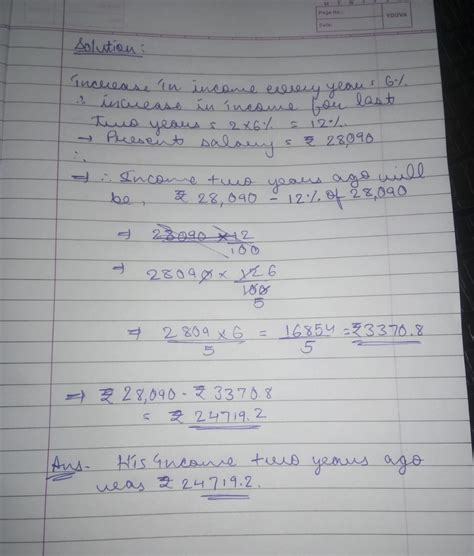 Page No.:
Date:
YOUVA
Solution:
Increase in income every year = 6%
∴ increase in income for last
two years = 2×6% = 12%
→ Present salary = ₹ 28,090
∴
⇒ ∴ Income two years ago will
be, ₹ 28,090 - 12% of 28,090
⇒ 28090 × 12
100
⇒ 28090 × 12 6
100
5
⇒ 2809 × 6 = 16854 = ₹3370.8
5 5
⇒ ₹ 28,090 - ₹ 3370.8
= ₹ 24719.2
Ans- His income two years ago
was ₹ 24719.2.